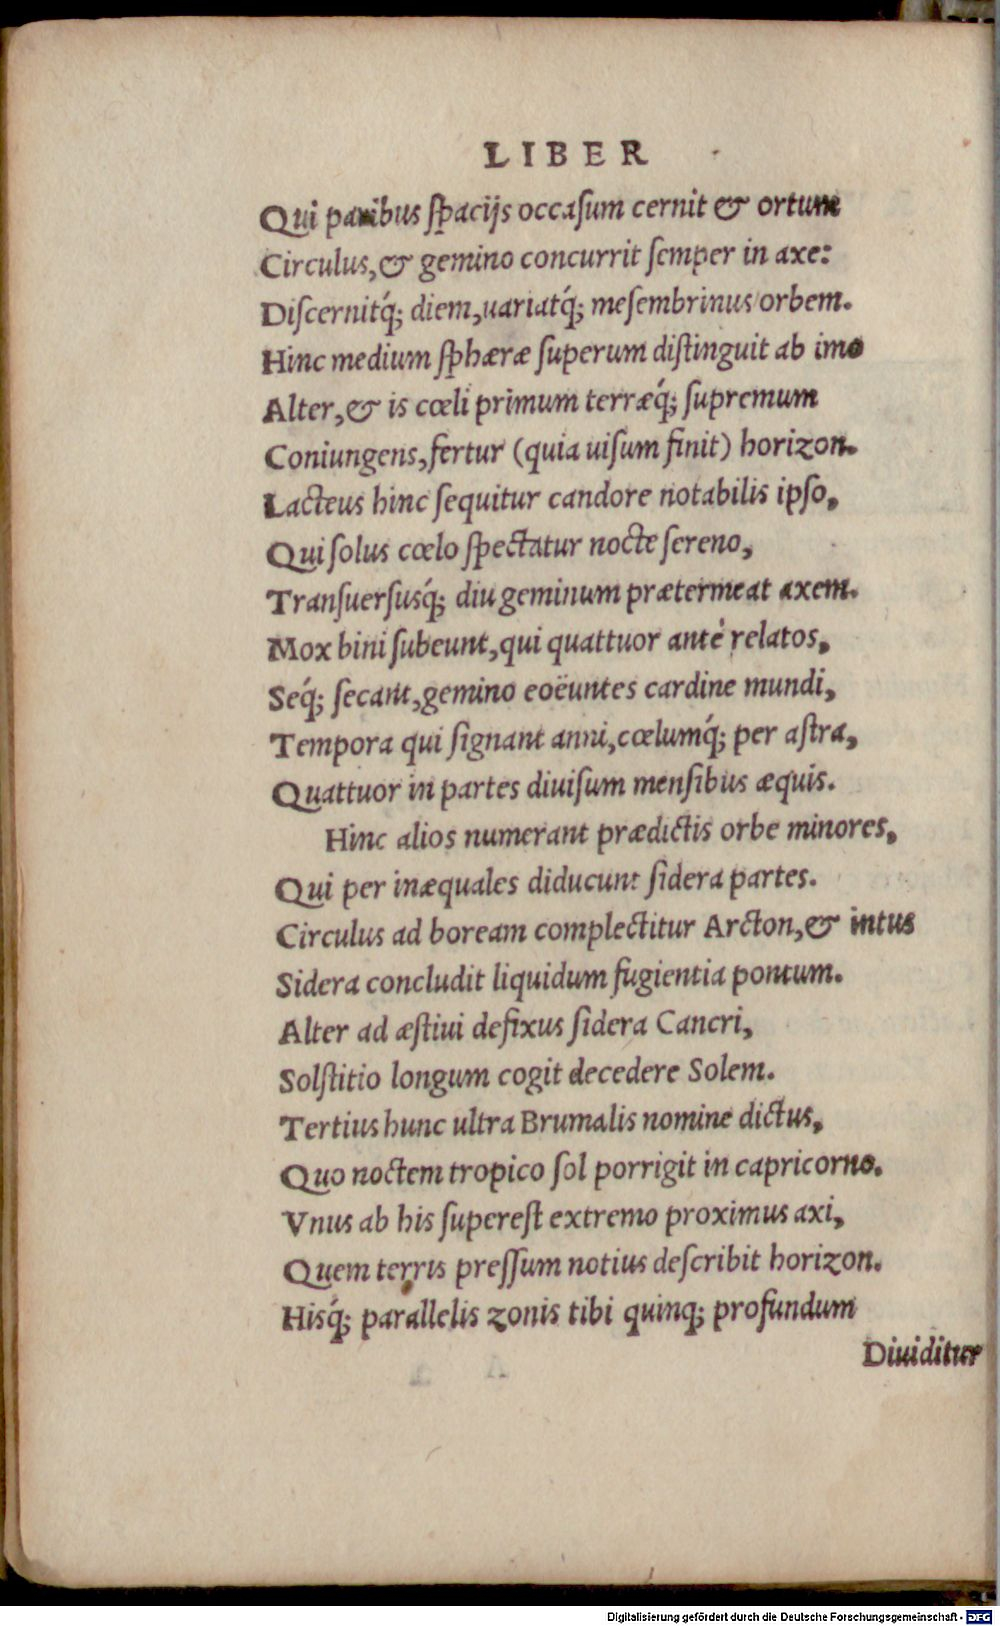 LIBER
Qui paribus ſpacijs occaſum cernit & ortum
Circulus,& gemino concurrit ſemper in axe:
Diſcernitq́; diem,uariatq́; meſembrinus orbem.
Hinc medium ſphæræ ſuperum diſtinguit ab imo
Alter,& is cœli primum terræq́; ſupremum
Coniungens,fertur (quia uiſum finit) horizon.
Lacteus hinc ſequitur candore notabilis ipſo,
Qui ſolus cœlo ſpectatur nocte ſereno,
Tranſuerſusq́; diu geminum prætermeat axem.
Mox bini ſubeunt,qui quattuor antè relatos,
Seq́; ſecant,gemino eoëuntes cardine mundi,
Tempora qui ſignant anni,cœlumq́; per aſtra,
Quattuor in partes diuiſum menſibus æquis.
Hinc alios numerant prædictis orbe minores,
Qui per inæquales diducunt ſidera partes.
Circulus ad boream complectitur Arcton,& intus
Sidera concludit liquidum fugientia pontum.
Alter ad æſtiui defixus ſidera Cancri,
Solſtitio longum cogit decedere Solem.
Tertius hunc ultra Brumalis nomine dictus,
Quo noctem tropico ſol porrigit in capricorno.
Vnus ab his ſupereſt extremo proximus axi,
Quem terris preſſum notius deſcribit horizon.
Hisq́; parallelis zonis tibi quinq; profundum
Diuiditur
Digitalisierung gefördert durch die Deutsche Forschungsgemeinschaft - DFG